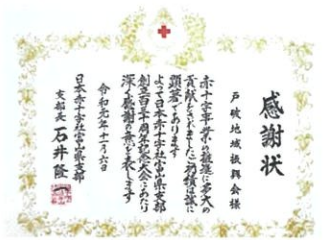 感謝状
戸破地域振興会様
赤十字事業の推進に多大の
貢献をされました功績は誠に
顕著であります
よって日本赤十字社富山県支部
創立百三十周年記念大会にあたり
深く感謝の意を表します
令和元年十一月六日
日本赤十字社富山県支部
支部長 石井隆